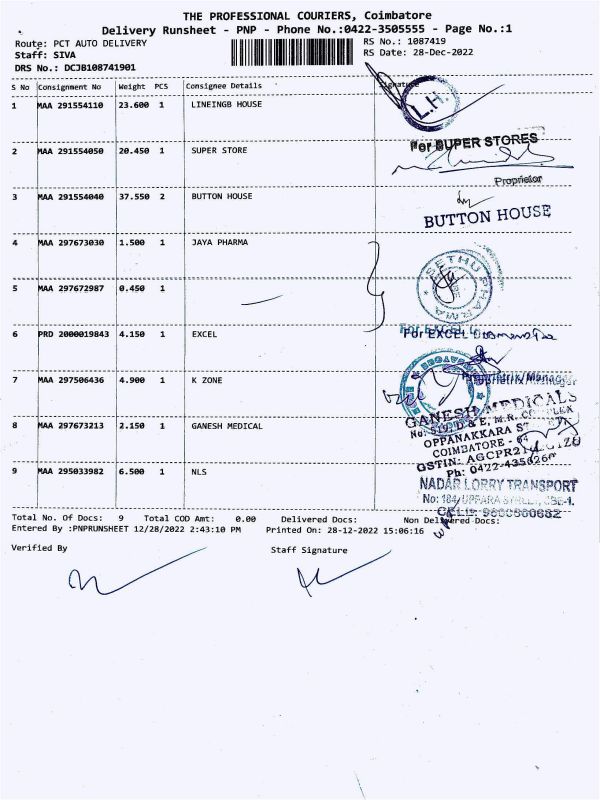 THE PROFESSIONAL COURIERS, Coimbatore
Delivery Runsheet - PNP - Phone No.:0422-3505555 - Page No.:1
Route: PCT AUTO DELIVERY RS No.: 1087419
Staff: SIVA RS Date: 28-Dec-2022
DRS No.: DCJB108741901
S No Consignment No Weight PCS Consignee Details Signature
1 MAA 291554110 23.600 1 LINEINGB HOUSE
L.H.
2 MAA 291554050 20.450 1 SUPER STORE
For SUPER STORES
Proprietor
3 MAA 291554040 37.550 2 BUTTON HOUSE
BUTTON HOUSE
4 MAA 297673030 1.500 1 JAYA PHARMA
SETHU PHARMA
5 MAA 297672987 0.450 1
6 PRD 2000019843 4.150 1 EXCEL
For EXCEL
7 MAA 297506436 4.900 1 K ZONE
8 MAA 297673213 2.150 1 GANESH MEDICAL
GANESH MEDICALS
OPPANAKKARA
COIMBATORE -
GSTIN:
Ph: 0422-435
9 MAA 295033982 6.500 1 NLS
NADAR LORRY TRANSPORT
No: 184/UPPARA STREET, CBE-1.
CELL:
Total No. Of Docs: 9 Total COD Amt: 0.00 Delivered Docs: Non Delivered Docs:
Entered By :PNPRUNSHEET 12/28/2022 2:43:10 PM Printed On: 28-12-2022 15:06:16
Verified By Staff Signature